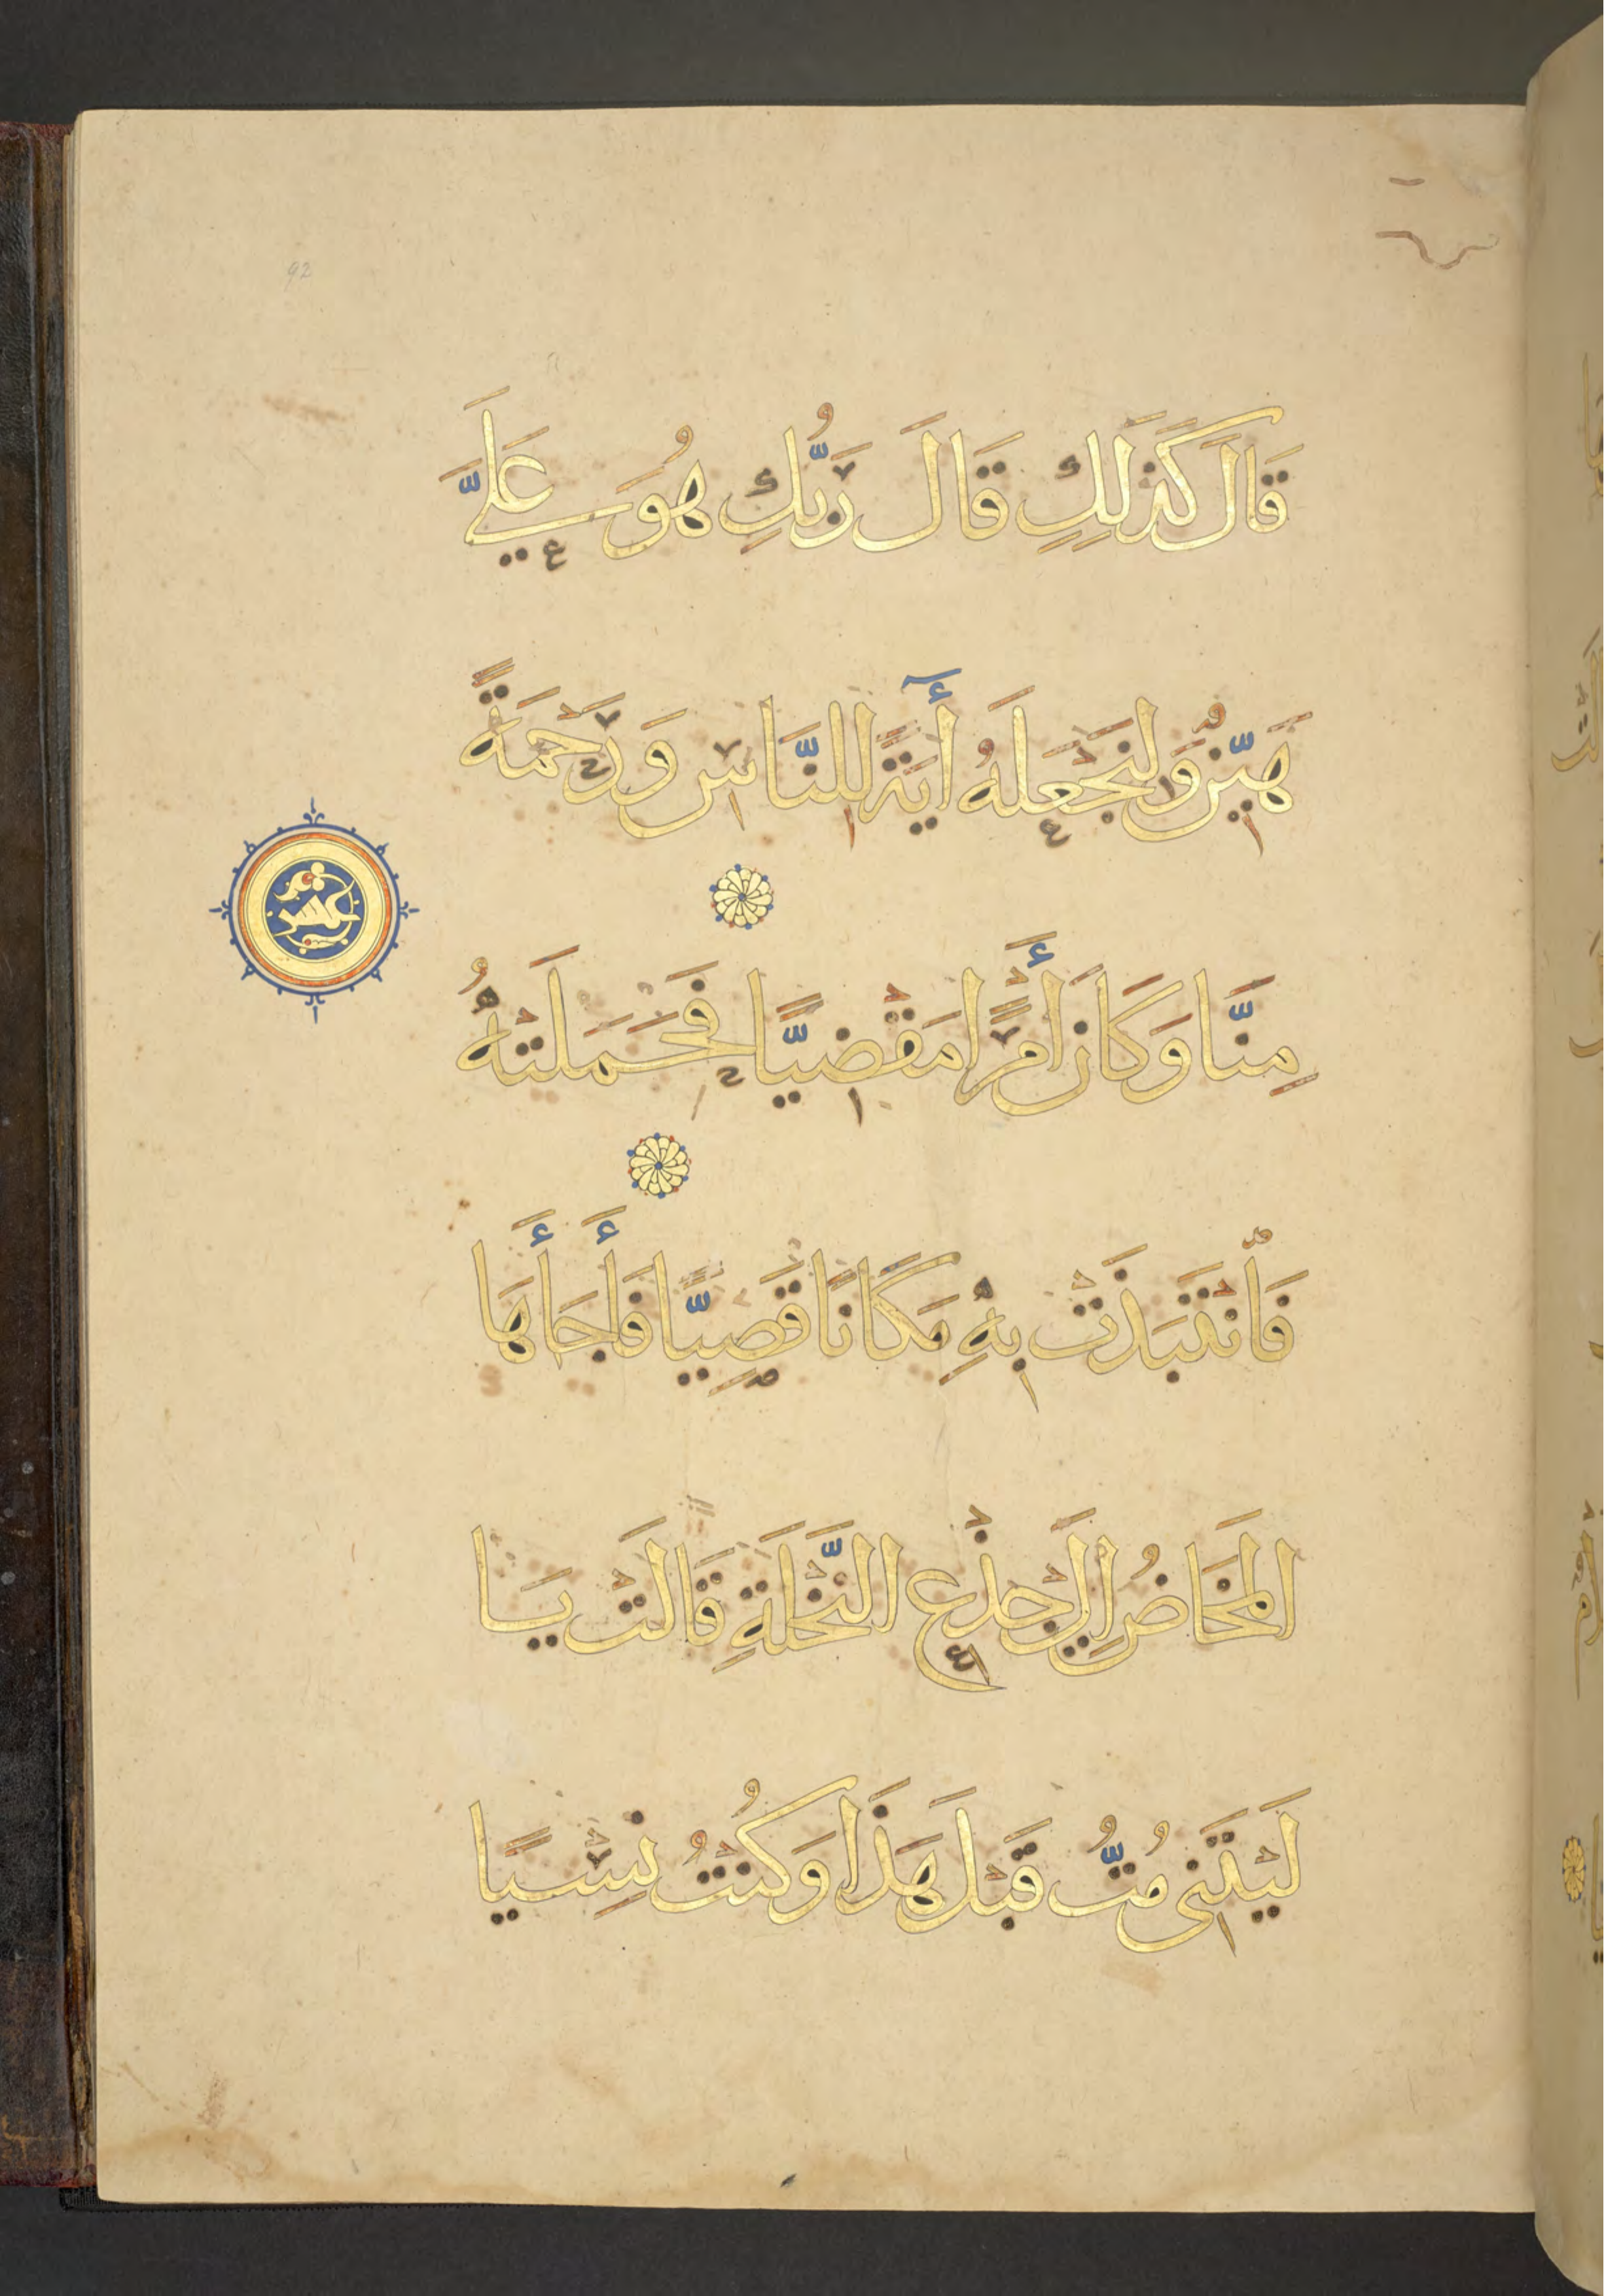 قَالَ كَذَلِكِ قَالَ رَبُّكِ هُوَ عَلَيَّ
هَيِّنٌ وَلِنَجْعَلَهُ أَيَةً لِلنَّاسِ وَرَحْمَةً
عشر
مِنَّا وَكَانَ أَمْرًا مَقْضِيًّا فَحَمَلَتْهُ
فَانْتَبَذَتْ بِهِ مَكَانًا قَصِيًّا فَأَجَأَهَا
المَخَاضُ إِلَى جِذْعِ النَّخْلَةِ قَالَتْ يَا
لَيْتَنِى مُتُّ قَبْلَ هَذَا وَكُنْتُ نِسْيًا
92